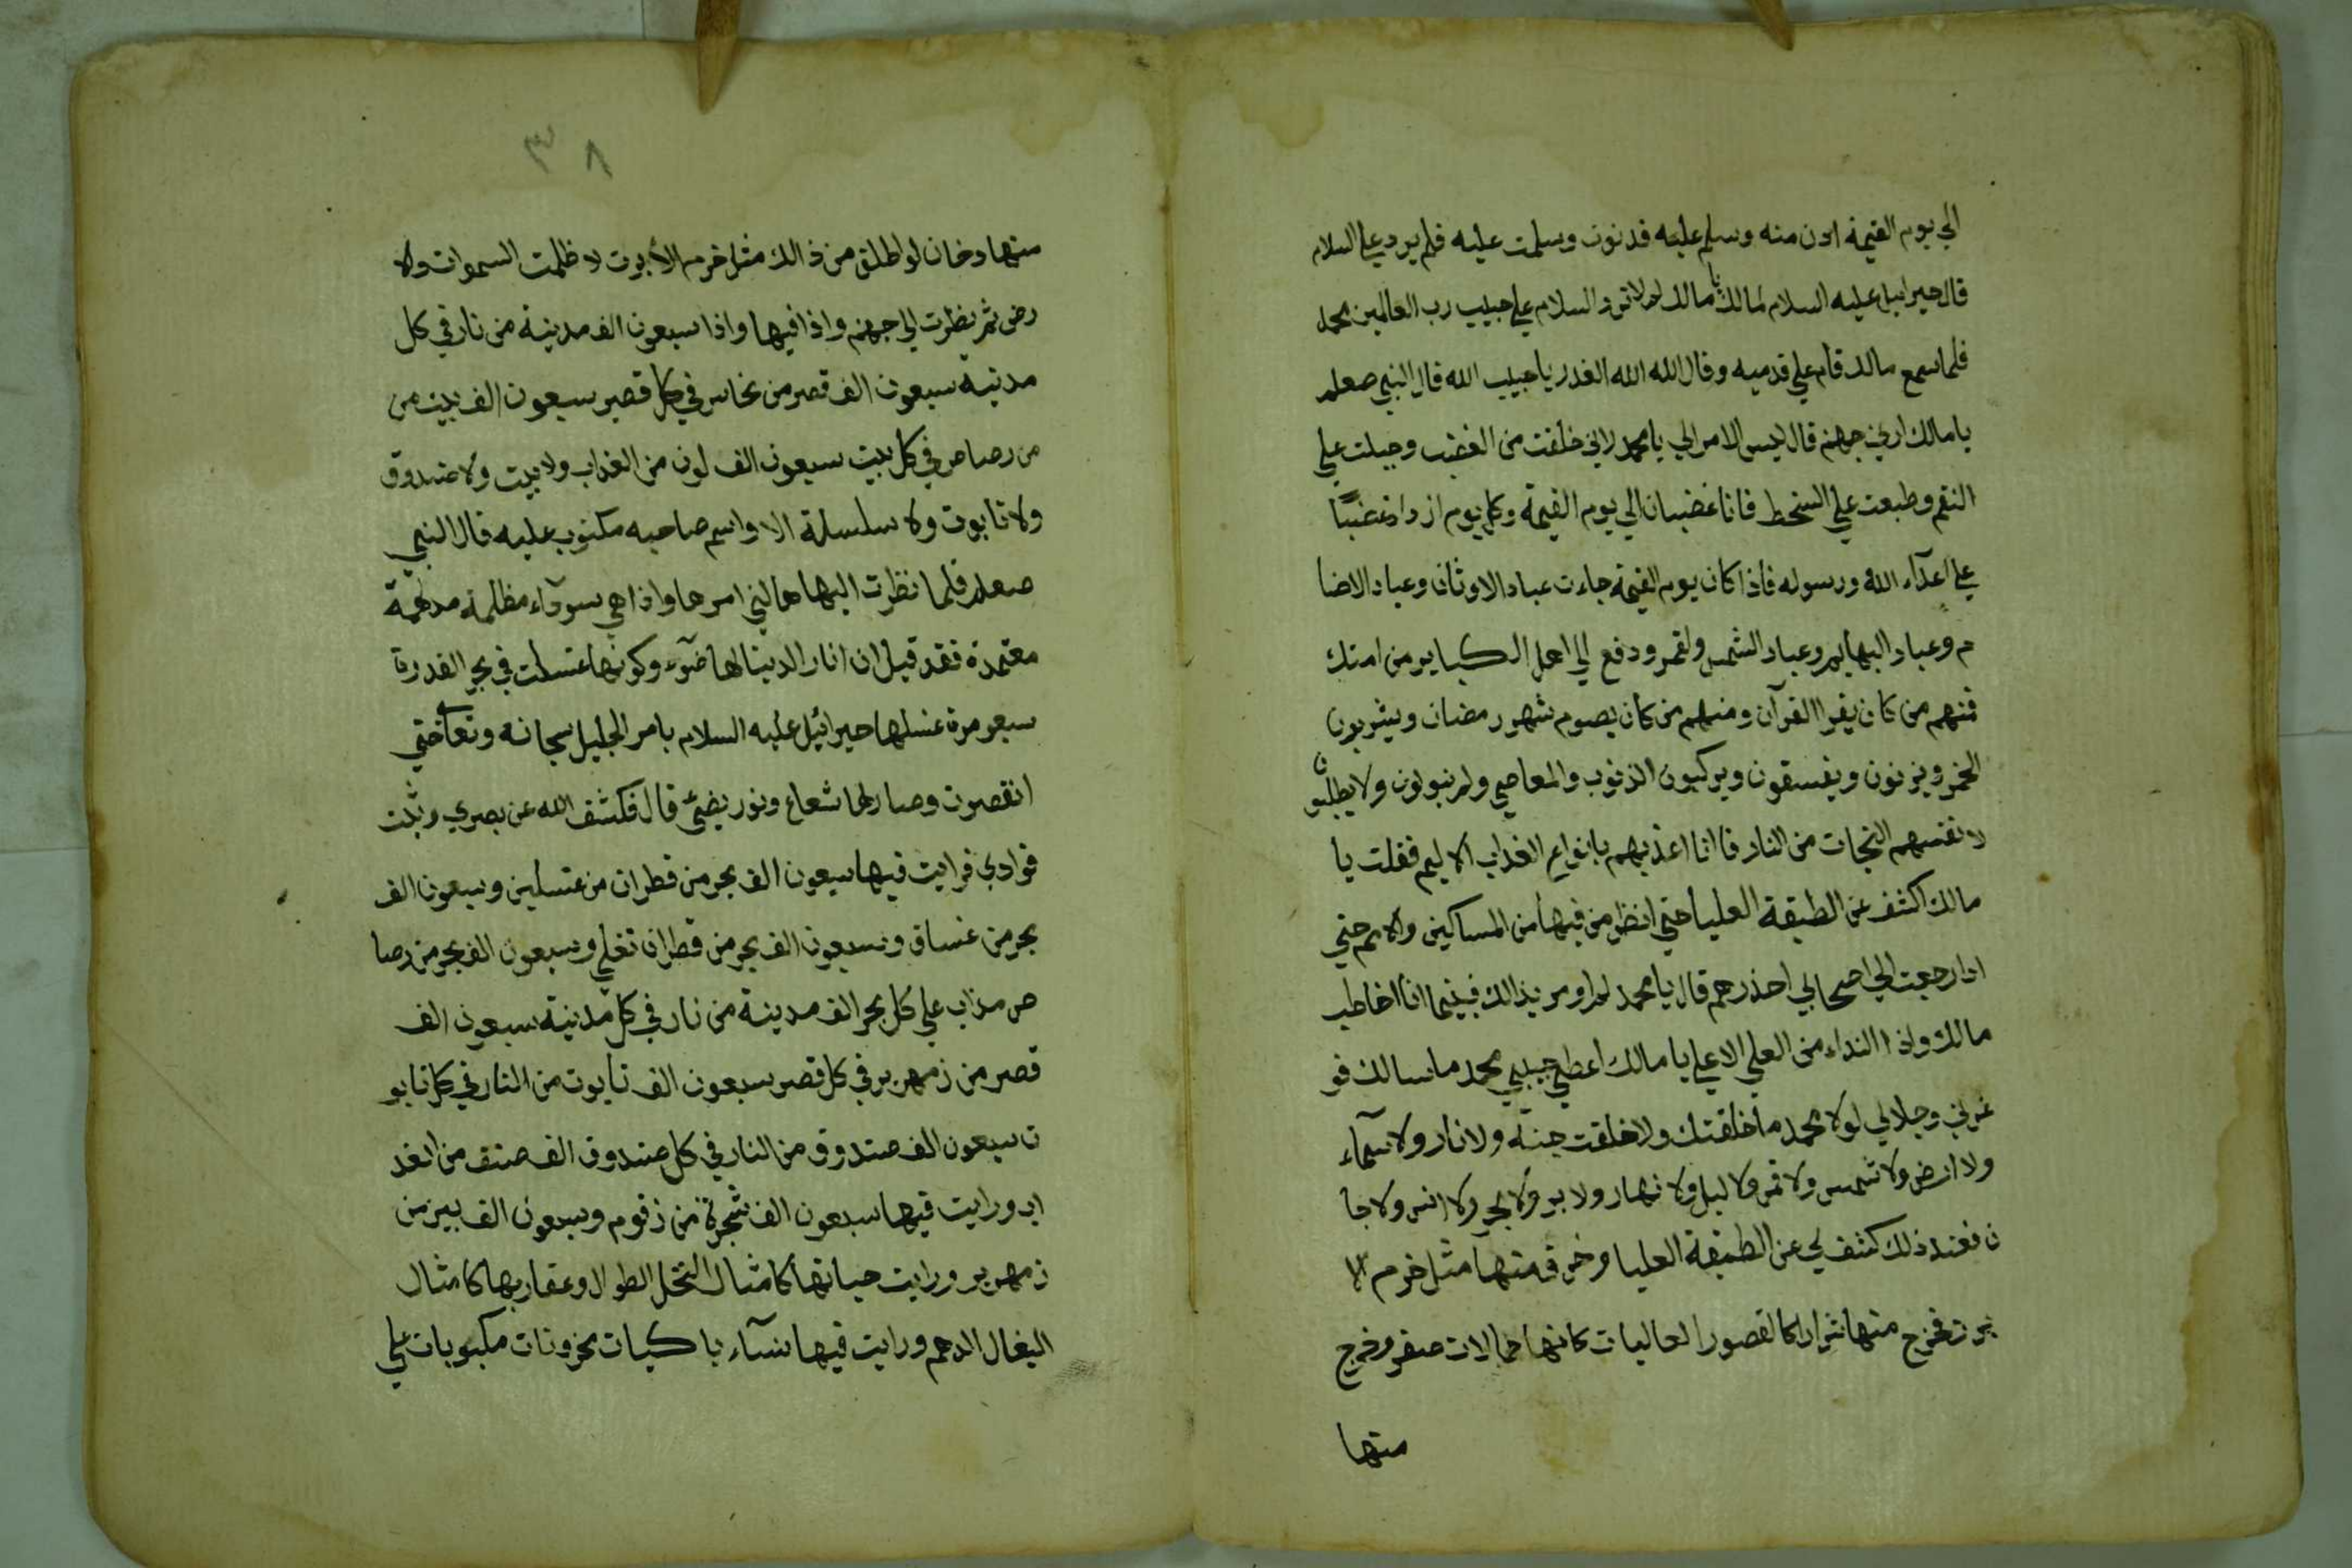 الي يوم القيمة ادن منه وسلم عليه فدنوت وسلمت عليه فلم يرد علي السلام
قال جبرائيل عليه السلام لمالك يا مالك لم لا ترد السلام علي حبيب رب العالمين محمد
فلما سمع مالك قام علي قدميه وقال الله الله العذر يا حبيب الله قال النبي صعلم
يا مالك اريني جهنم قال ليس الامر الي يا محمد لاني خلقت من الغضب وجبلت علي
النقم وطبعت علي السخط فانا غضبان الي يوم القيمة وكل يوم ازداد غضبًا
علي اعدآء الله ورسوله فاذا كان يوم القيمة جاءت عباد الاوثان وعباد الاصنا
م وعباد البهايم وعباد الشمس ولقمر ودفع الي اهل الكباير من امتك
فمنهم من كان يقرا القرآن ومنهم من كان يصوم شهور مضان ويشربون
الخمر ويزنون ويفسقون ويركبون الذنوب والمعاصي ولم يتوبون ولا يطلبون
لانفسهم النجات من النار فاانا اعذبهم بانواع العذاب الاليم فقلت يا
مالك اكشف عن الطبقة العليا حتي انظر من فيها من المساكين والامم حتي
اذا رجعت الي اصحابي احذرهم قال يا محمد لم اومر بذالك فبينما انا اخاطب
مالك واذا النداء من العلي الاعلي يا مالك اعطي حبيبي محمد ما سالك فو
عزتي وجلالي لولا محمد ما خلقتك ولا خلقت جنة ولا نار ولا سمآء
ولا ارض ولا شمس ولا قمر ولا ليل ولا نهار ولا بر ولا بحر ولا انس ولا جا
ن فعند ذلك كشف لي عن الطبقة العليا وخرق منها مثل خرم الا
برت فخرج منها شرارا كالقصور العاليات كانها جمالات صفر وخرج
منها
٣٨
منها دخان لو اطلق من ذالك مثل خرم الأبرت لاظلمت السموات والا
رض ثم نظرت الي جهنم واذا فيها واذا سبعون الف مدينة من نار في كل
مدنيه سبعون الف قصر من نحاس في كل قصر سبعون الف بيت من
من رصاص في كل بيت سبعون الف لون من العذاب ولا بيت ولا صندوق
ولا تابوت ولا سلسلة الا واسم صاحبه مكتوب عليه قال النبي
صعلم فلما نظرت اليها هالني امرها واذا هي سودآء مظلمة مدلهمة
معتمدة فقد قيل ان انار الدينا لها ضوء وكونها غسلت في بحر القدرة
سبعو مرة غسلها جبرائيل عليه السلام بامر الجليل سبحانه وتعا حتي
انقصرت وصار لها شعاع ونور يضئ قال فكشف الله عن بصري وثبت
فوادي فرايت فيها سبعون الف بحر من قطران من غسلين وسبعون الف
بحر من غساق وسبعون الف بحر من قطران تغلي وسبعون الف بحر من رصا
ص مذاب علي كل بحر الف مدينة من نار في كل مدنية سبعون الف
قصر من زمهرير في كل قصر سبعون الف تابوت من النار في كل تابو
ت سبعون الف صندوق من النار في كل صندوق الف صنف من العذ
اب ورايت فيها سبعون الف شجرة من زقوم وسبعون الف بير من
زمهرير ورايت حياتها كامثال النخل الطوال وعقاربها كامثال
البغال الدهم ورايت فيها نسآء باكيات محزونات مكبوبات علي